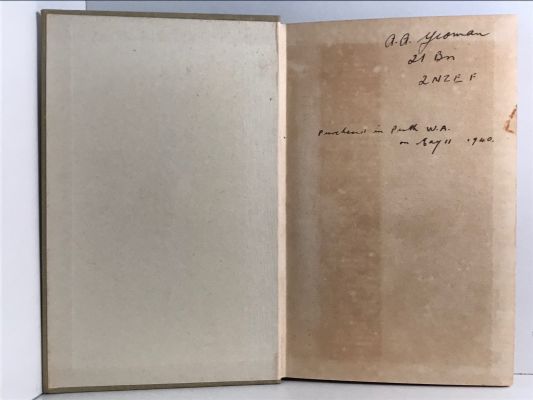 A.A. Yeoman
21 Bn
2NZEF
Purchased in Perth W.A.
on May 11 1940.